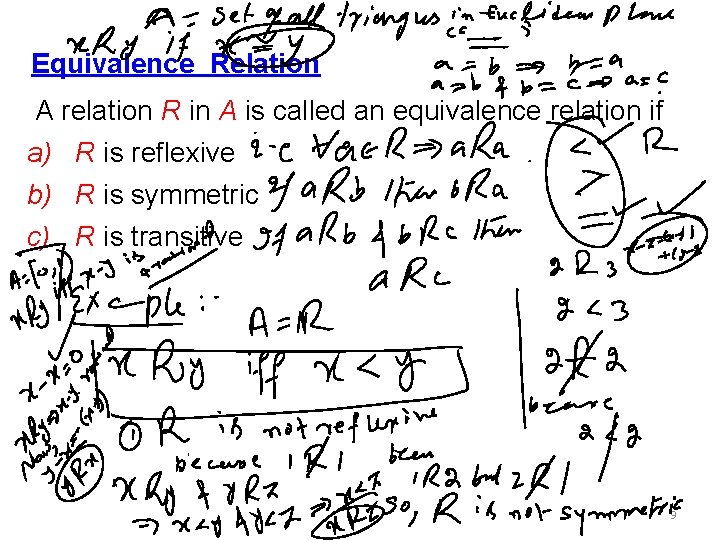 A = Set of all triangles in Euclidean plane
xRy if x ≅ y
Equivalence Relation
a = b ⇒ b = a
a = b & b = c ⇒ a = c
A relation R in A is called an equivalence relation if
a) R is reflexive i.e ∀ a ∈ R ⇒ aRa .
b) R is symmetric if aRb then bRa
c) R is transitive if aRb & bRc then
aRc
< R
>
=
A = [0, 1]
xRy iff x-y is rational
Example :-
A = R
x R y iff x < y
2 R 3
2 < 3
2 R̸ 2
because
2 ≮ 2
x - x = 0
xRy ⇒ x-y
Now y-x = -(x-y)
yRx
① R is not reflexive
because 1 R̸ 1
1R2 but 2 R̸ 1
x Ry & yRz ⇒ x<z
⇒ x<y & y<z ⇒ xRz
So, R is not symmetric